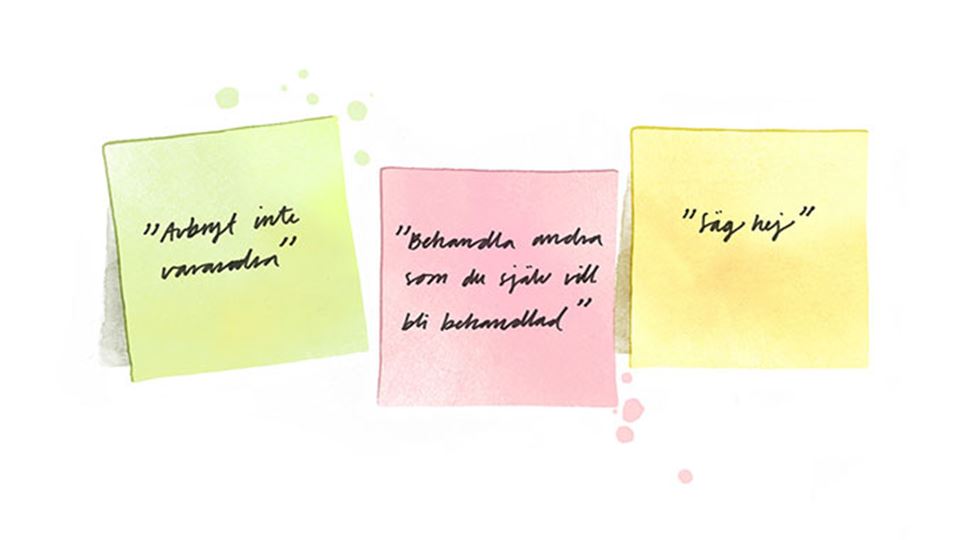 ”Avbryt inte
varandra”
”Behandla andra
som du själv vill
bli behandlad”
”Säg hej”